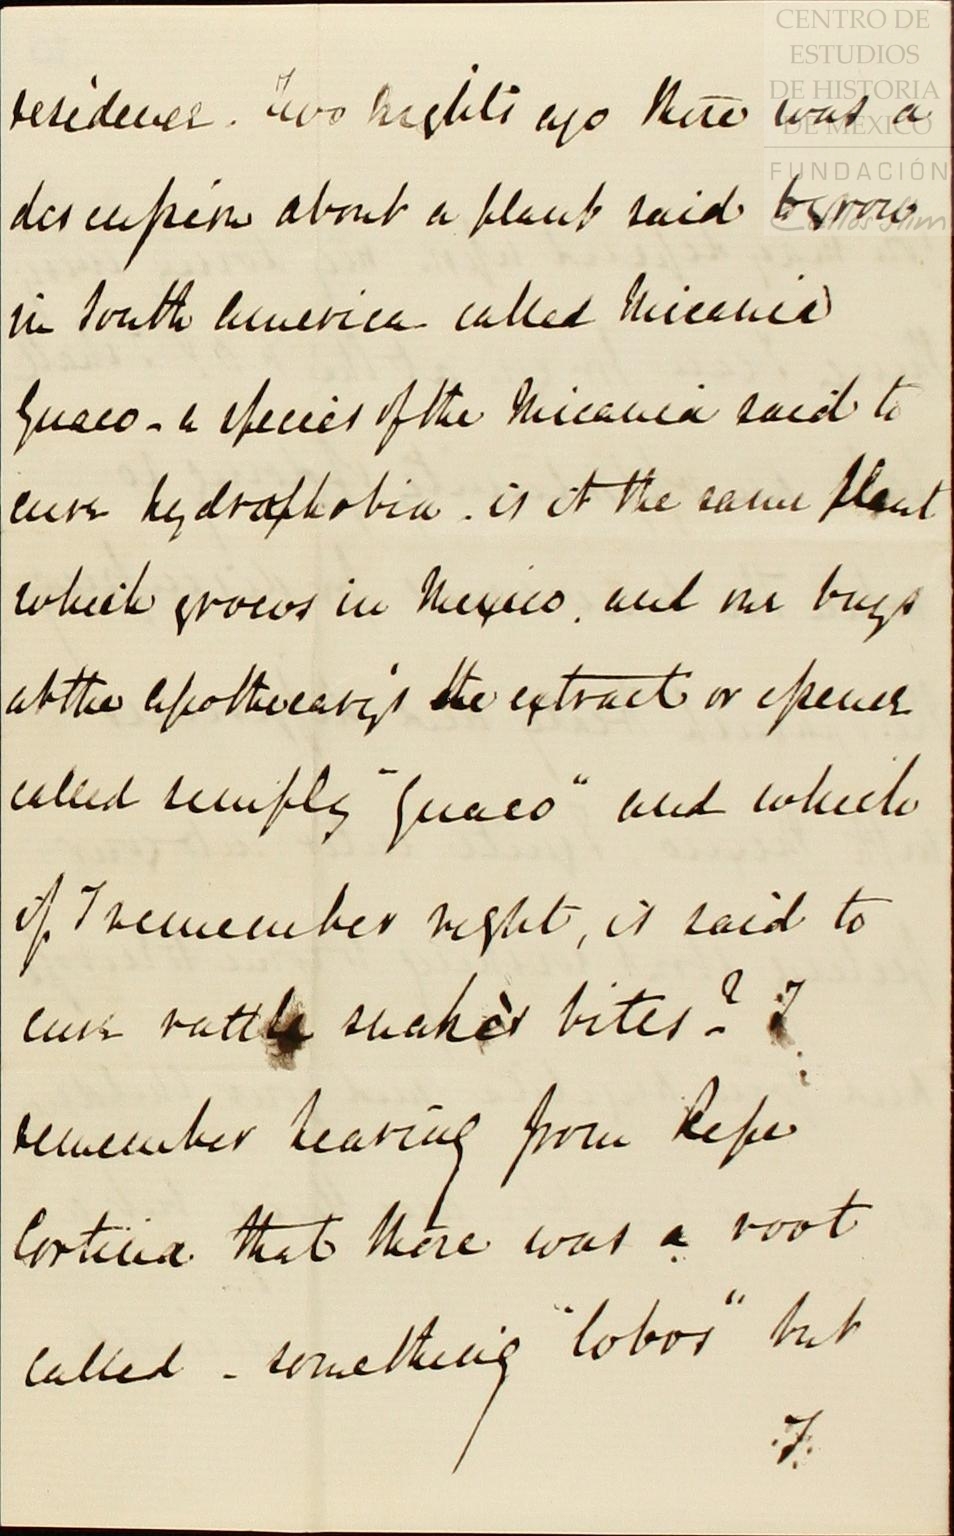 CENTRO DE
ESTUDIOS
DE HISTORIA
DE MÉXICO
FUNDACIÓN
Carlos Slim
residence. Two nights ago there was a
discussion about a plant said to grow
in South America called Micania
Guaco - a species of the Micania said to
cure hydrophobia. is it the same plant
which grows in Mexico. and one buys
at the apothecary's the extract or essence
called simply "Guaco" and which
if I remember right, is said to
cure rattle snake's bites? I
remember hearing from Pepe
Cortina that there was a root
called - something "lobos" but
I